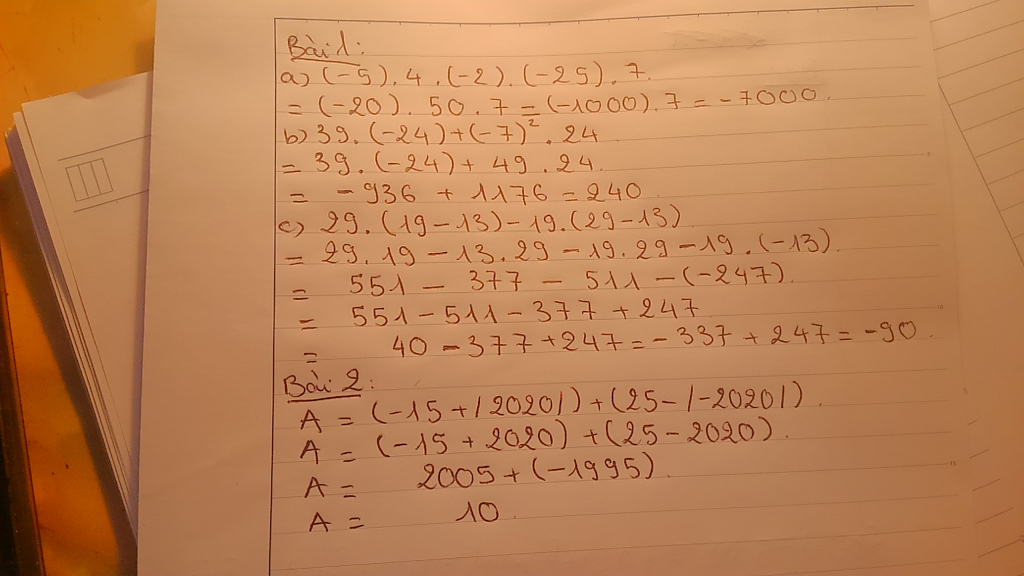 Bài 1:
a) (-5). 4 . (-2). (-25). 7.
= (-20). 50 . 7 = (-1000). 7 = -7000.
b) 39. (-24) + (-7)². 24
= 39. (-24) + 49 . 24.
= -936 + 1176 = 240
c) 29. (19-13) - 19. (29-13)
= 29. 19 - 13. 29 - 19. 29 - 19. (-13).
= 551 - 377 - 511 - (-247).
= 551 - 511 - 377 + 247
= 40 - 377 + 247 = -337 + 247 = -90.
Bài 2:
A = (-15 + |2020|) + (25 - |-2020|).
A = (-15 + 2020) + (25 - 2020).
A = 2005 + (-1995).
A = 10.